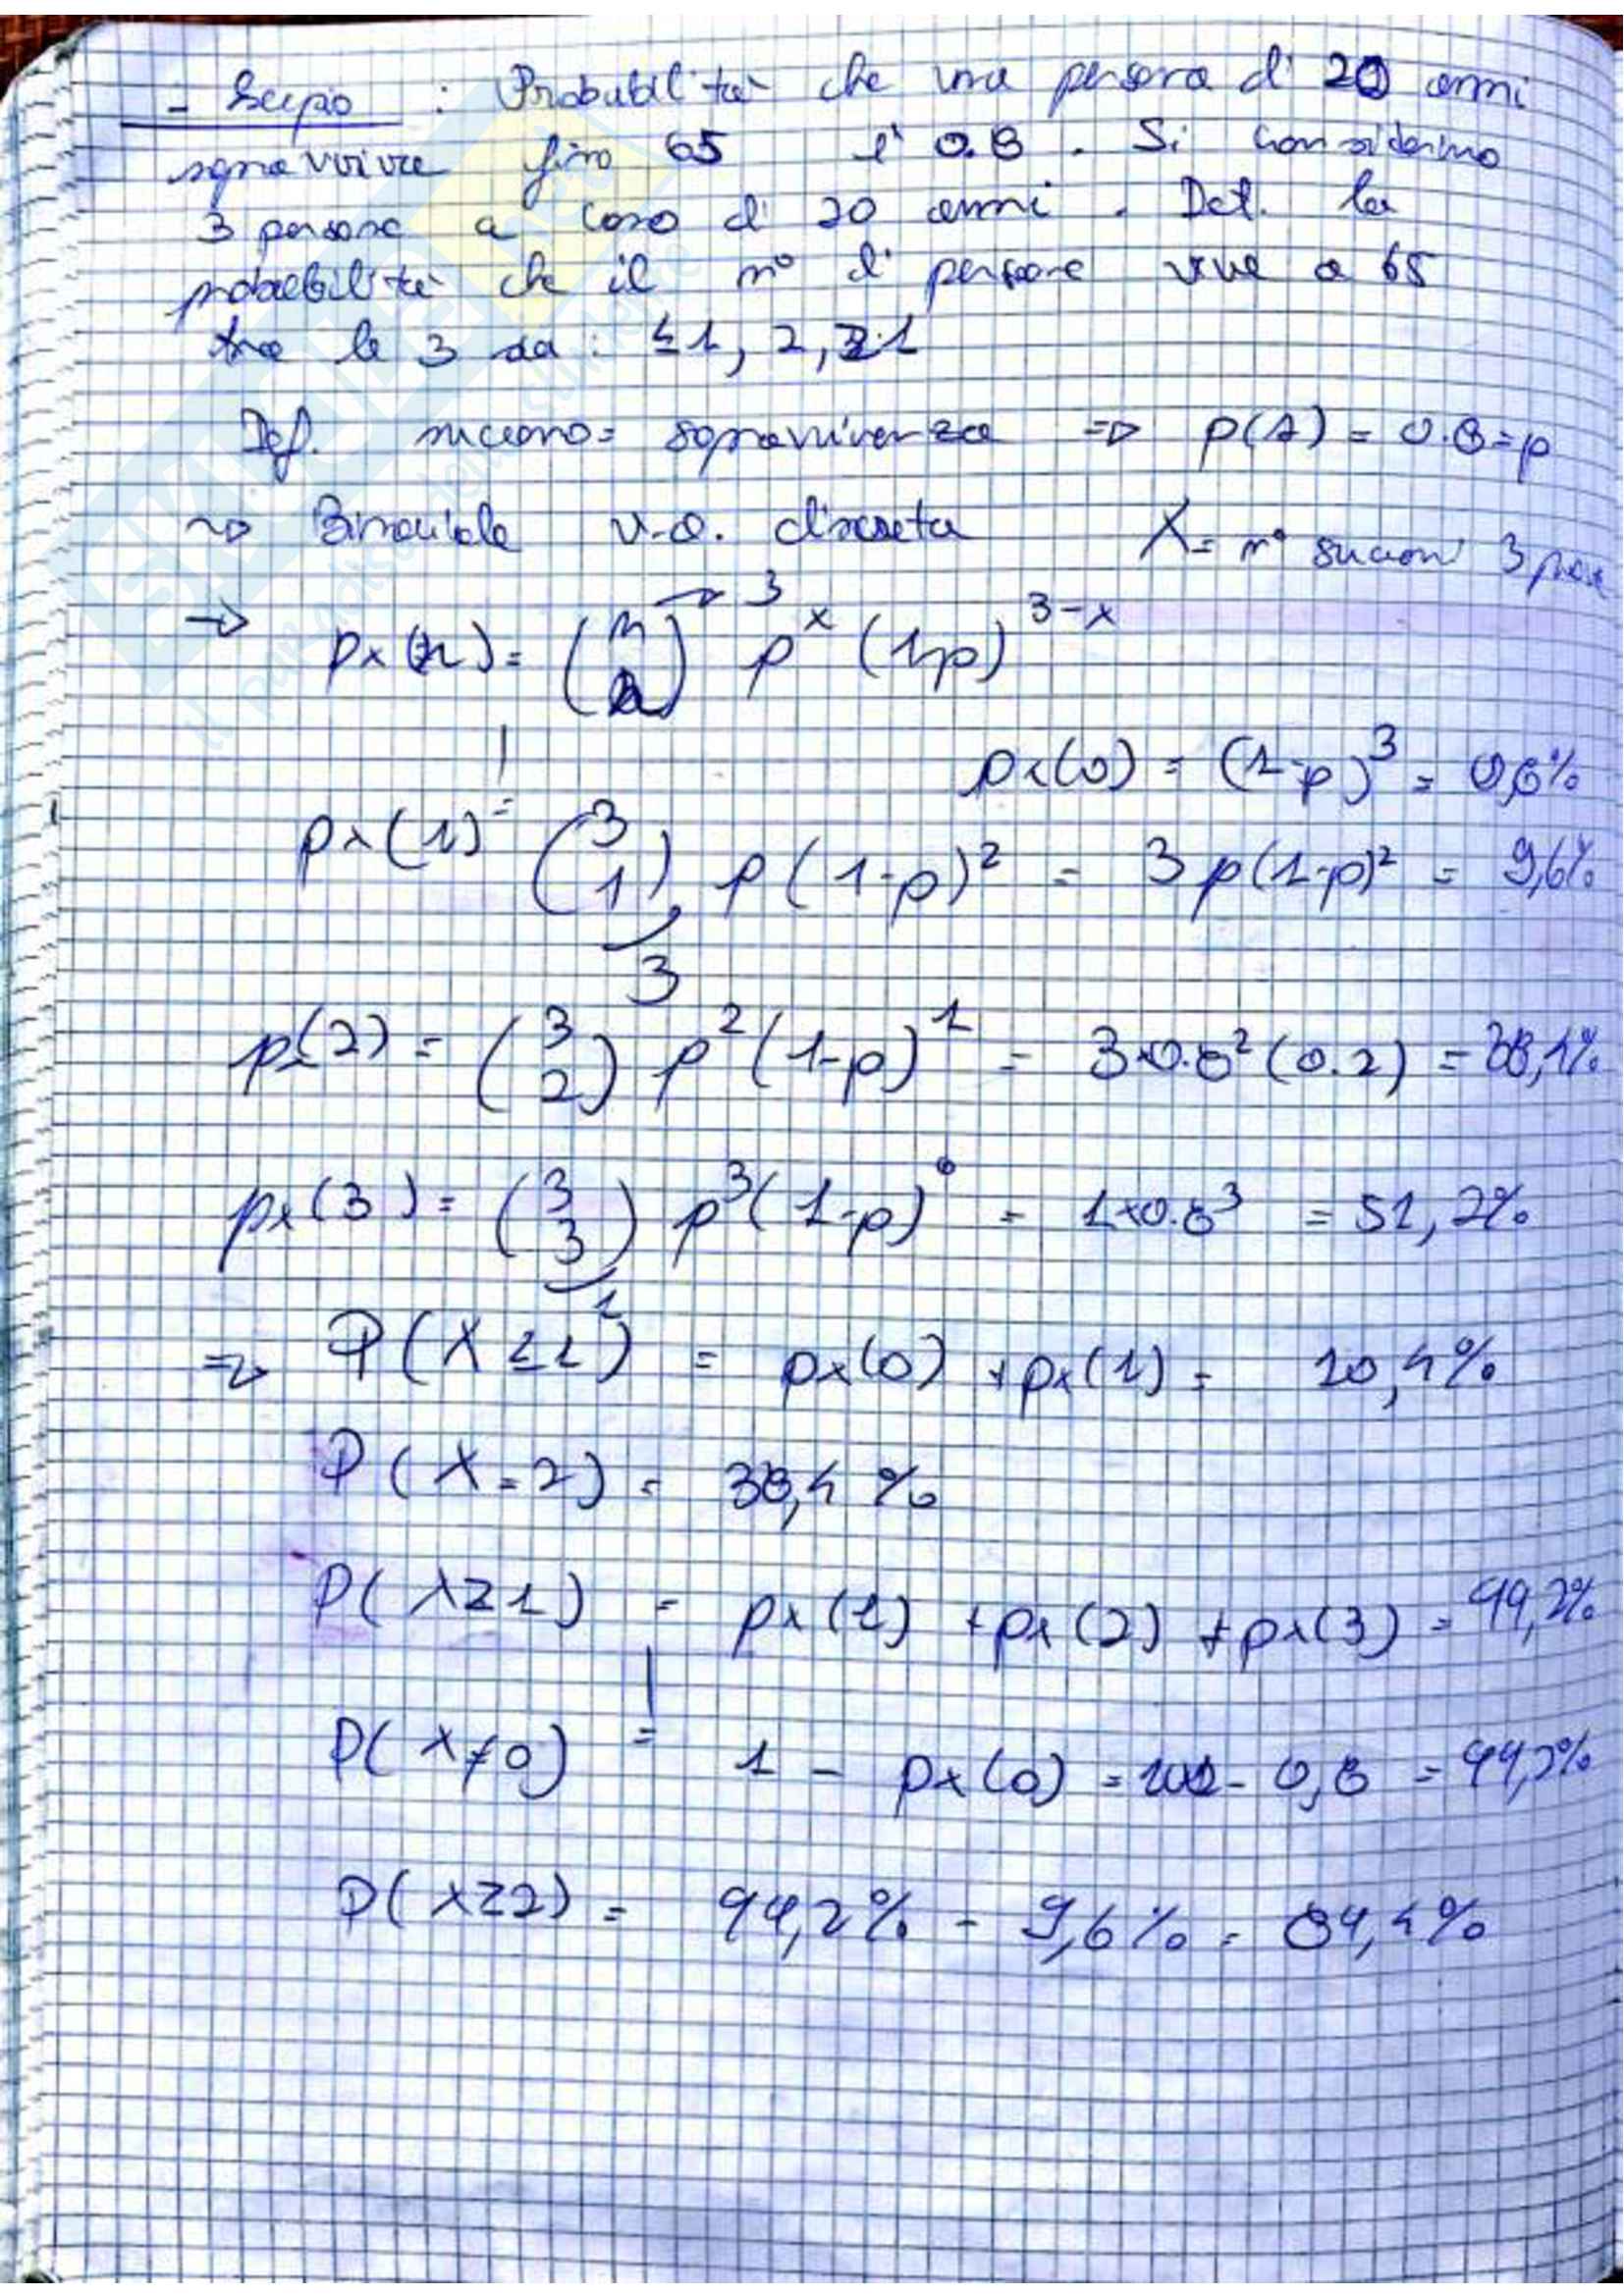 - Esempio : Probabilità che una persona di 20 anni
sopravvive fino 65 è 0.8 . Si considerino
3 persone a caso di 20 anni . Det. la
probabilità che il n° di persone vive a 65
tra le 3 sia : ≤1, 2, ≥1
Def. successo = sopravvivenza => p(1) = 0.8 = p
~> Binomiale v.a. discreta X = n° successi 3
→ px(x) = (n x) → 3 p^x (1-p)^3-x
px(0) = (1-p)^3 = 0,8%
px(1) = (3 1) p (1-p)^2 = 3p(1-p)^2 = 9,6%
3
px(2) = (3 2) p^2 (1-p)^1 = 3×0.8^2 (0.2) = 38,4%
px(3) = (3 3) p^3 (1-p)^0 = 1×0.8^3 = 51,2%
1
=> P(X≤1) = px(0) + px(1) = 10,4%
P(X=2) = 38,4 %
P(X≥1) = px(1) + px(2) + px(3) = 99,2%
P(X≠0) = 1 - px(0) = 100 - 0,8 = 99,2%
P(X≥2) = 99,2% - 9,6% = 89,4%